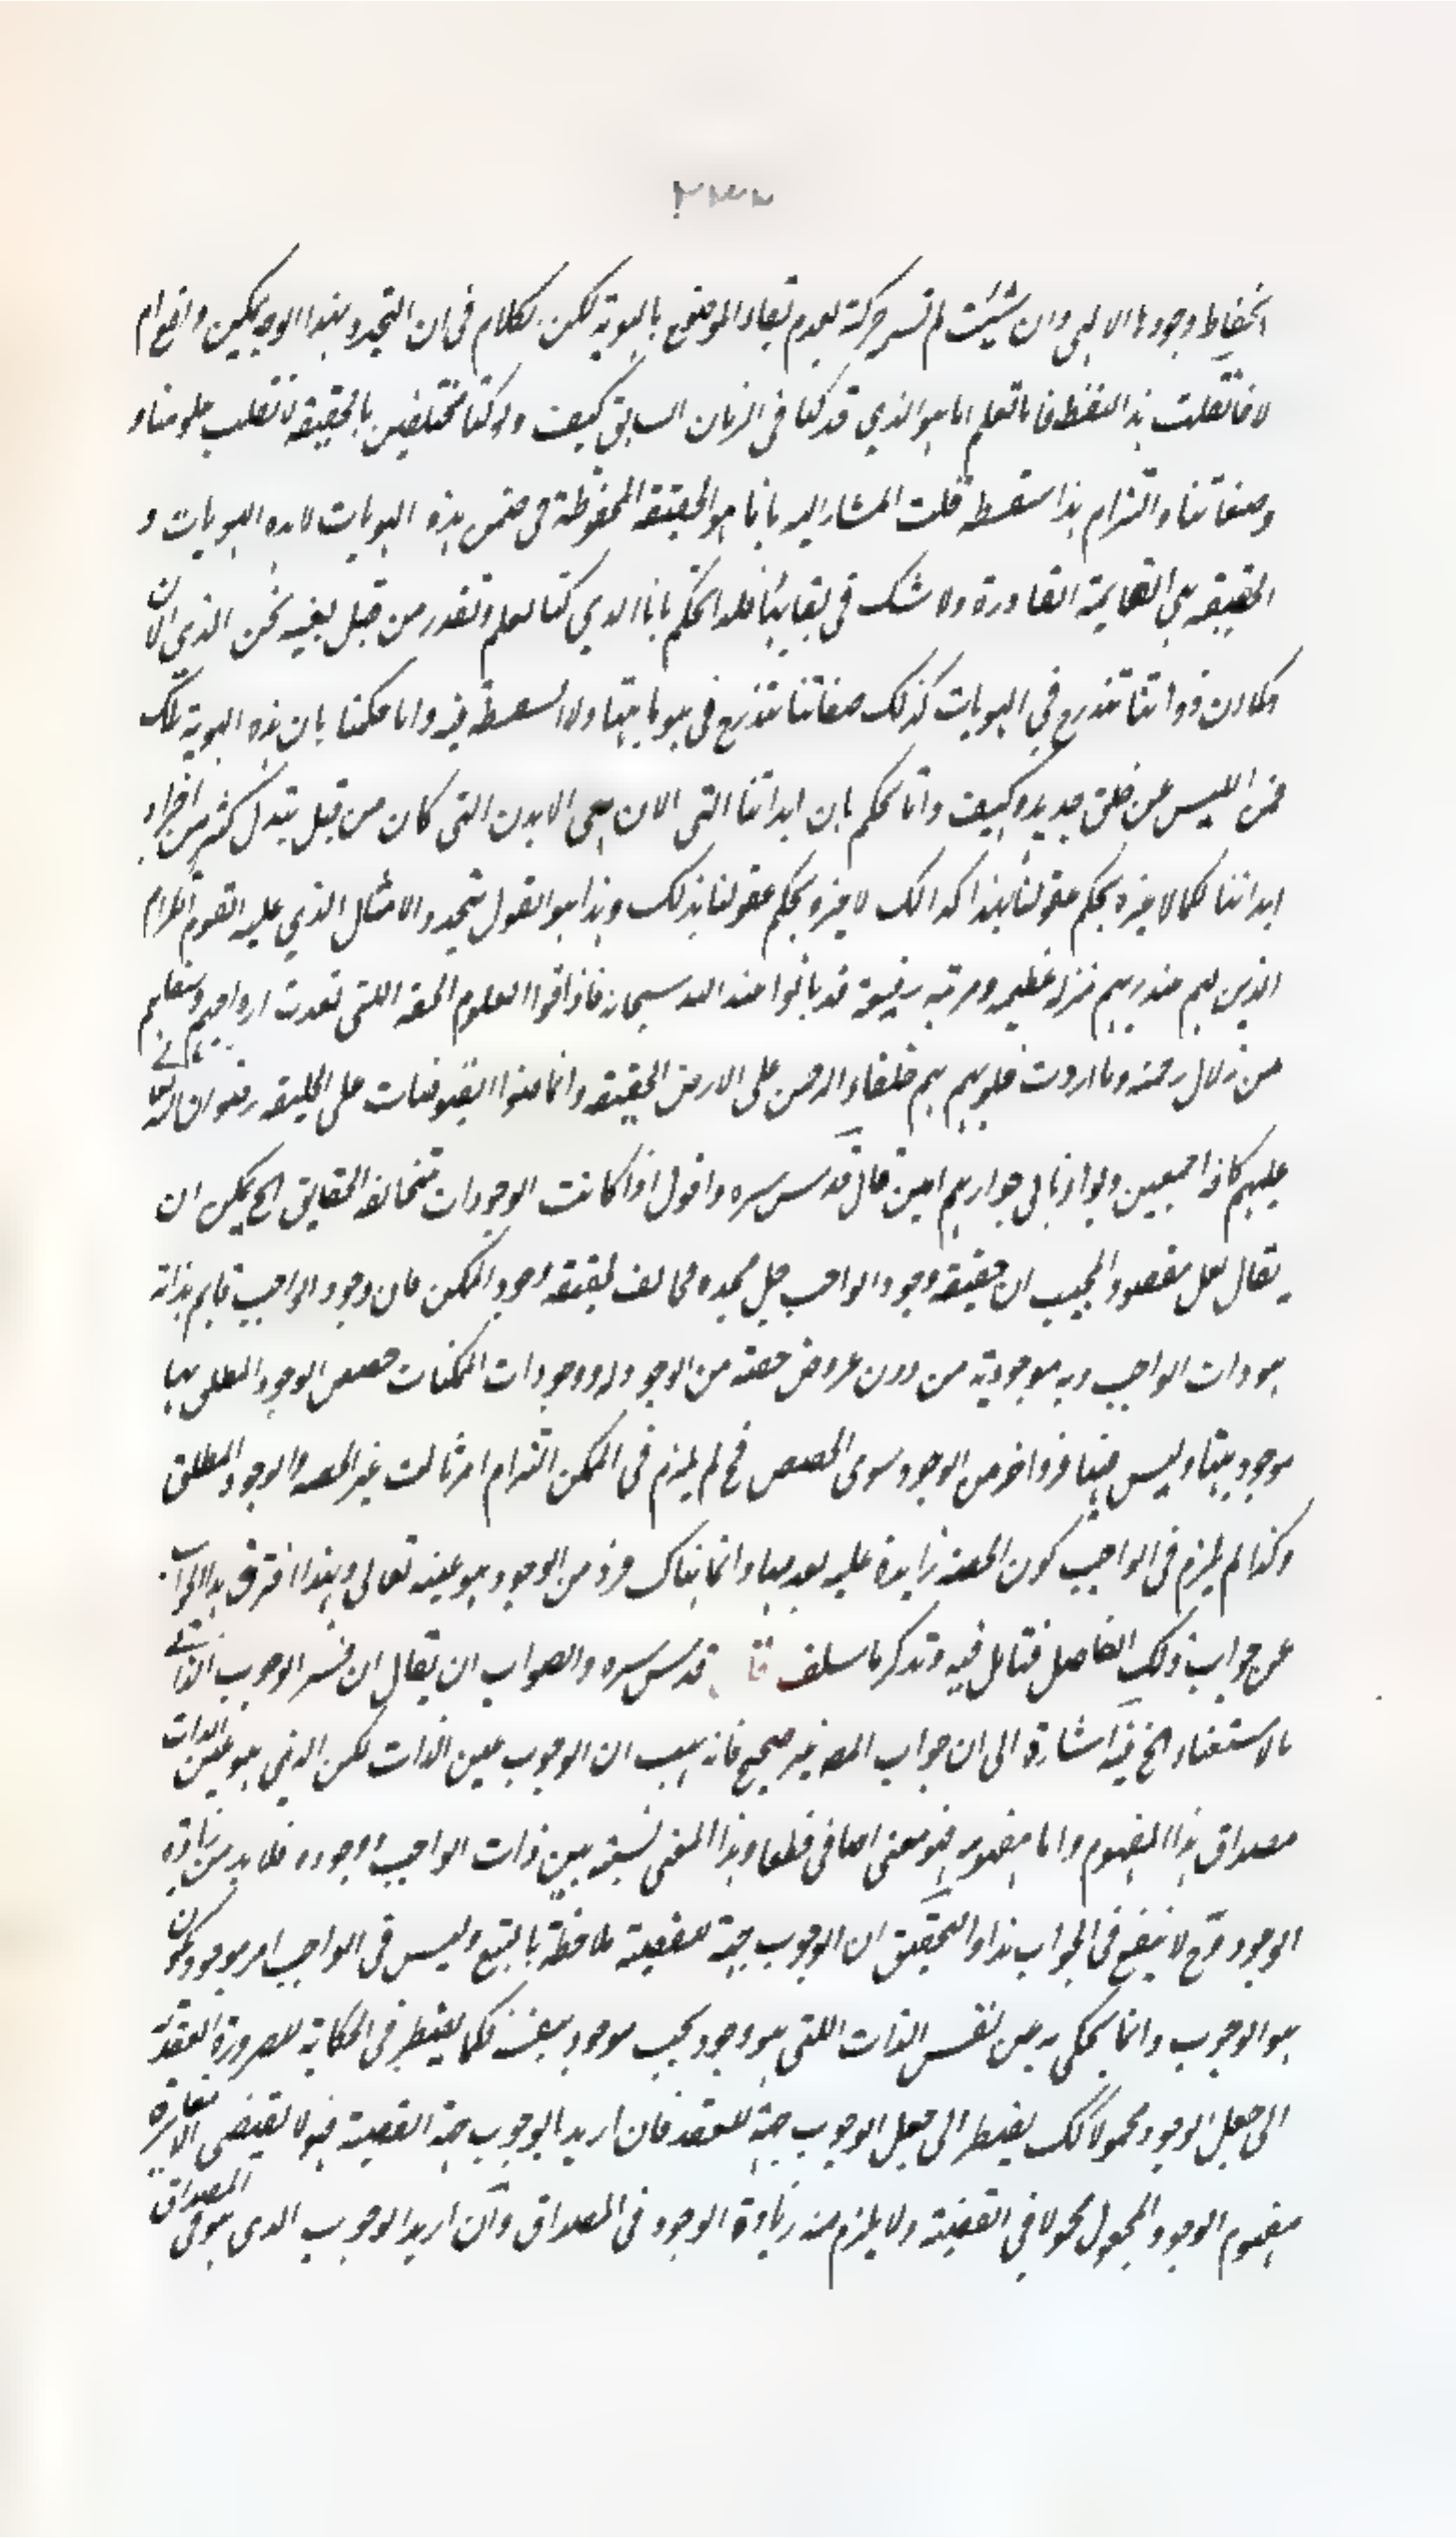 انحفاظ وجودها الالهي وان شئت لم تسم حركة لعدم بقاء الموضوع بالهوية لكن الكلام في ان التجدد بهذا الوجه يمكن واقع ام
لا فان قلت هذا سفسطة فانا نعلم انا هو الذي قد كنا في الزمان السابق كيف ولو كنا مختلفين بالحقيقة لانقلب علومنا و
وصفاتنا والتزام هذا سفسطة قلت المشار اليه بانا هو الحقيقة المحفوظة في ضمن هذه الهويات لا هذه الهويات و
الحقيقة هي القائمة القادرة ولا شك في بقائها فلذا نحكم بانا الذي كنا نعلم ونقدر من قبل بعينه نحن الذي الان
وكما ان ذواتنا تتدرج في الهويات كذلك صفاتنا تتدرج في هوياتها ولا سفسطة فيه واما حكمنا بان هذه الهوية تلك
فمن اللبس عن خلق جديد وكيف وانا نحكم بان ابداننا التي الان هي الابدان التي كان من قبل يتبدل كثير من اجزاء
ابداننا فكما لا عبرة بحكم عقولنا بهذا كذلك لا عبرة بحكم عقولنا بذلك وهذا هو القول بتجدد الامثال الذي عليه القوم الكرام
الذين لهم عند ربهم منزلة عظيمة ومرتبة رفيعة قد بانوا عند الله سبحانه فذاقوا العلوم الحقة التي تغذت ارواحهم وسقاهم
من زلال رحمته وما اروت قلوبهم هم خلفاء الرحمن على الارض الحقيقة وافاضوا الفيوضات على الخليقة رضوان الله تعالى
عليهم كافة اجمعين ولواذنا الى جوارهم امين قال قدس سره واقول اذا كانت الوجودات متخالفة الحقايق الخ يمكن ان
يقال لعل مقصود المجيب ان حقيقة وجود الواجب جل مجده مخالف لحقيقة وجود الممكن فان وجود الواجب قايم بذاته
هو ذات الواجب وبه موجوديته من دون عروض حصة من الوجود له ووجودات الممكنات حصص الوجود المطلق بها
موجوديتها وليس فيها فرد اخر من الوجود سوى الحصص فح لم يلزم في الممكن التزام امر ثالث غير الحصة والوجود المطلق
وكذا لم يلزم في الواجب كون الحصة زايدة عليه لعدمها وانما هناك فرد من الوجود هو عينه تعالى وبهذا افترق هذا الجواب
عن جواب ذلك الفاضل فتامل فيه وتذكر ما سلف قا قدس سره والصواب ان يقال ان فسر الوجوب الذاتي
بالاستغناء الخ فيه اشارة الى ان جواب المص غير صحيح فانه هب ان الوجوب عين الذات لكن الذي هو عين الذات
مصداق هذا المفهوم واما مفهومه فهو معنى اضافي قطعا وهذا المعنى نسبة بين ذات الواجب ووجوده فلا بد من زيادة
الوجود وح لا ينفع في الجواب هذا والتحقيق ان الوجوب جهة للقضية ملاحظة بالتبع وليس في الواجب امر موجود يكون
هو الوجوب وانما يحكى به عن نفس الذات التي هو وجود يجب موجود بنفسه فكما يضطر في الحكاية لضرورة العقد
الى جعل الوجود محمولا كك يضطر الى جعل الوجوب جهة للعقد فان اريد بالوجوب جهة القضية فهو لا يقتضى الا مغايرة
مفهوم الوجود المجعول محمولا في القضية ولا يلزم منه زيادة الوجود في المصداق وان اريد الوجوب الذي هو في المصداق